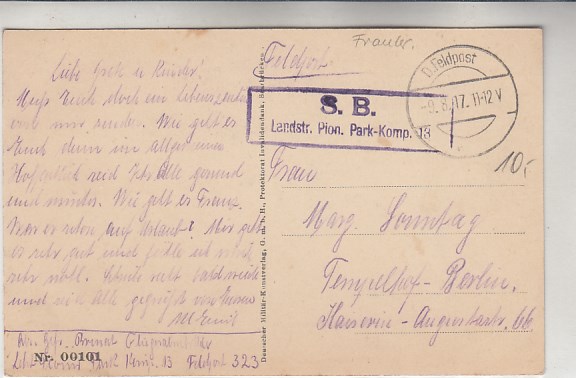 Frauler.
Feldpost
D. Feldpost
-9.8.17. 11-12 V
S. B.
Landstr. Pion. Park-Komp. 13
10,-
Liebe Gret u Kinder!
Muß Euch doch ein Lebenszeichen
von mir senden. Wie geht es
Euch denn im allgem
Hoffentlich seid Ihr alle gesund
und munter. Wie geht es Franz
War er schon auf Urlaub? Mir geht
es sehr gut und fühle ich mich
sehr wohl. Schreibt recht bald wieder
und seid Alle gegrüßt von Eurem
Emil
Abs. Gefr.
Nr. 00101
Park Komp. 13 Feldpost 323
Deutscher Militär-Kunstverlag, G. m. b. H., Protektorat Invalidendank.
Frau
Marg. Sonntag
Tempelhof-Berlin.
Kaiserin-Augustastr. 66